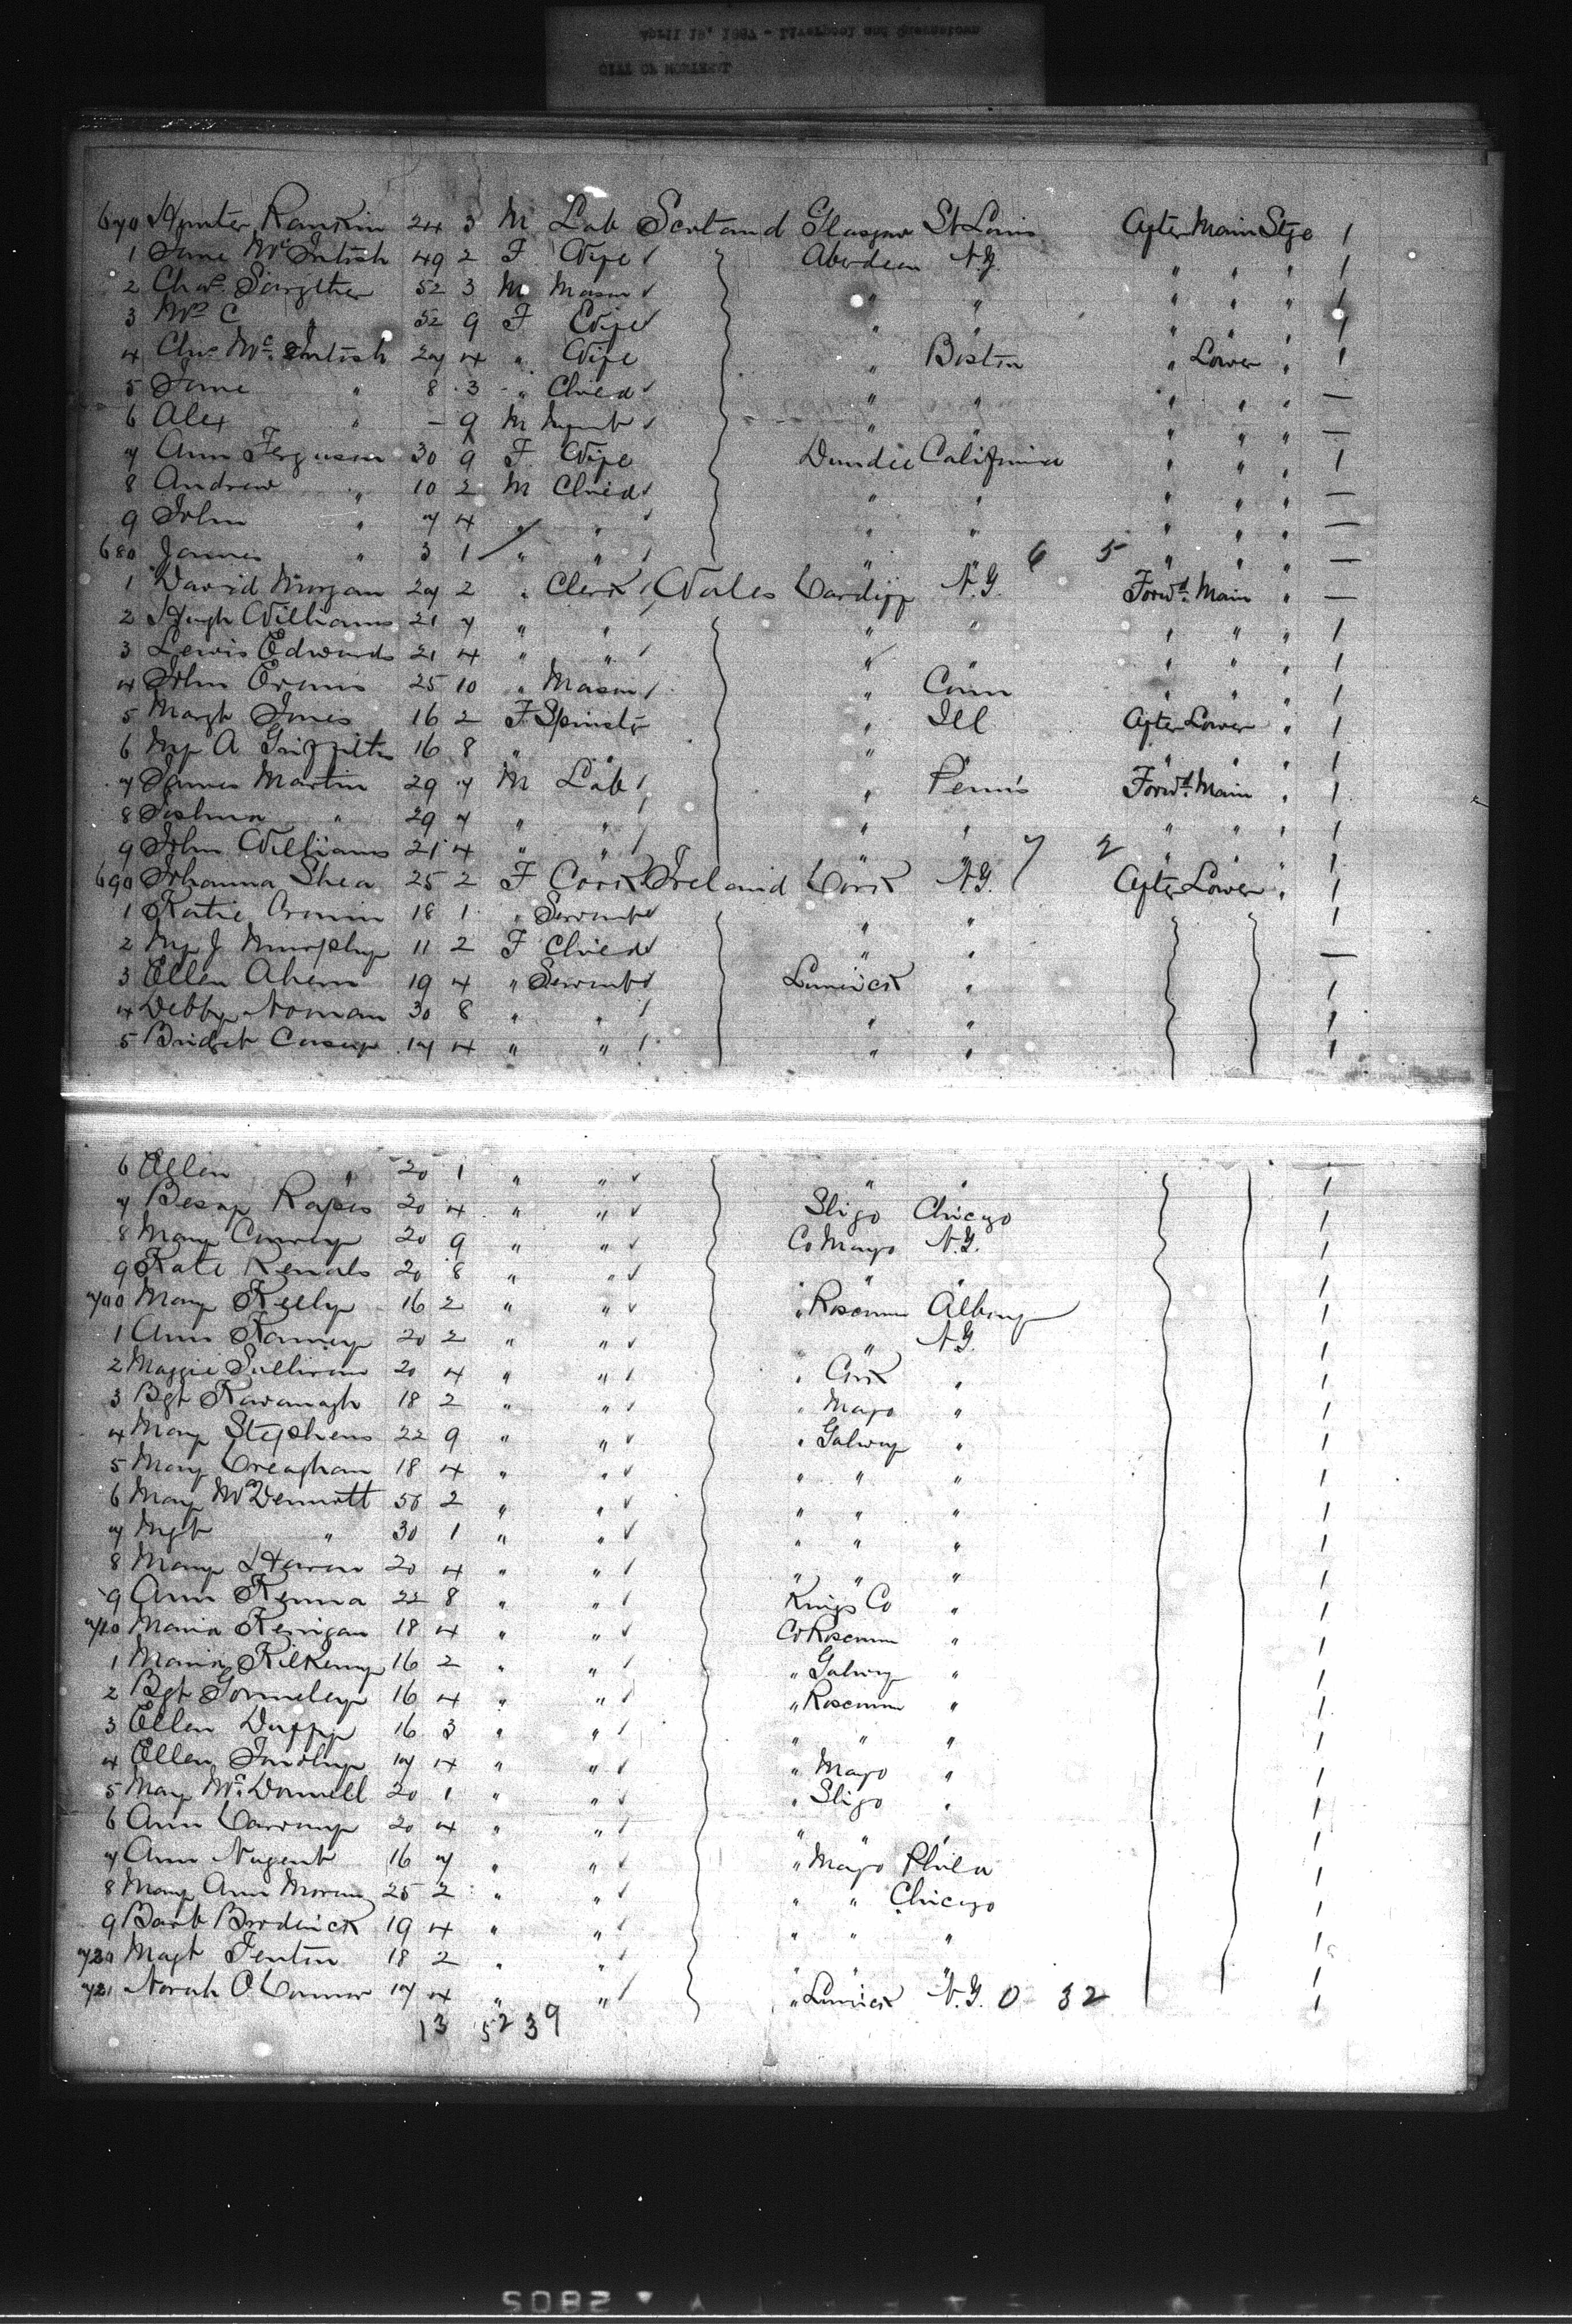 April 19, 1887 - Liverpool and Queenstown
CITY OF MONTREAL
670 Hunter Rankin 24 3 M Lab Scotland Glasgow St Louis After Main Stge 1
1 Jane McIntosh 49 2 F Wife ✓ Aberdeen N.Y. " " " 1
2 Chas 52 3 M Mason ✓ " " " " " 1
3 Mrs C " 52 9 F Wife ✓ " " " " " 1
4 Chrs McIntosh 27 4 " Wife " Boston " Lower " 1
5 Jane " 8 3 " Chied ✓ " " " " " —
6 Alex " - 9 M Infant ✓ " " " " " —
7 Ann Ferguson 30 9 F Wife Dundee California " " " 1
8 Andrew " 10 2 M Chied ✓ " " " " " —
9 John " 7 4 " " ✓ " " " " " —
680 James " 3 1 " " ✓ " " 6 5 " " " —
1 David Morgan 27 2 " Clerk ✓ Wales Cardiff N.Y. Forwd. Main " —
2 Hugh Williams 21 7 " " " " " " " 1
3 Lewis Edwards 21 4 " " ✓ " " " " " 1
4 John Evans 25 10 " Mason ✓ " Conn " " " 1
5 Margt Jones 16 2 F Spinstr " Ill After Lower " 1
6 My A Griffiths 16 8 " " " " " 1
7 James Martin 29 7 M Lab ✓ " Penns Forwd. Main " 1
8 Joshua " 29 7 " " ✓ " " " " " 1
9 John Williams 21 4 " " ✓ " " 7 2 " " " 1
690 Johanna Shea 25 2 F Cook Ireland Cork N.Y. After Lower " 1
1 Katie Cronin 18 1 " Servant ✓ " " 1
2 My J Murphy 11 2 F Chied ✓ " " —
3 Ellen Ahern 19 4 " Servant ✓ Limrick " 1
4 Debby Noonan 30 8 " " ✓ " " 1
5 Bridget Casey 17 4 " " ✓ " " 1
6 Ellen " 20 1 " " ✓ " " 1
7 Bessy 20 4 " " ✓ Sligo Chicago 1
8 Mary Conway 20 9 " " ✓ Co Mayo N.Y. 1
9 Kate 20 8 " " ✓ " " 1
700 Mary Kelly 16 2 " " ✓ " Roscmm Albany 1
1 Ann 20 2 " " ✓ " N.Y. 1
2 Maggie Sullivan 20 4 " " ✓ " Cork " 1
3 Bgt Kavanagh 18 2 " " ✓ " Mayo " 1
4 Mary Stephens 22 9 " " ✓ " Galway " 1
5 Mary Creaghan 18 4 " " ✓ " " " 1
6 Mary McDermott 50 2 " " ✓ " " " 1
7 Mgt " 30 1 " " ✓ " " " 1
8 Mary 20 4 " " ✓ " " " 1
9 Ann Kenna 22 8 " " ✓ Kings Co " 1
710 Maria Kerrigan 18 4 " " ✓ Co Roscmm " 1
1 Maria Kilkenny 16 2 " " ✓ " Galway " 1
2 Bgt Gormeley 16 4 " " ✓ " Roscmm " 1
3 Ellen Duffy 16 3 " " ✓ " " " 1
4 Ellen 17 4 " " ✓ " Mayo " 1
5 Mary McDonnell 20 1 " " ✓ " Sligo " 1
6 Ann 20 4 " " ✓ " " " 1
7 Ann Nugent 16 7 " " ✓ " Mayo Phila 1
8 Mary Ann Moran 25 2 " " ✓ " " Chicago 1
9 Barb Broderick 19 4 " " ✓ " " " 1
720 Magt Fenton 18 2 " " ✓ " " " 1
721 Norah O'Connor 17 4 " " ✓ " Limrick N.Y. 0 32 1
13 52 39
2082